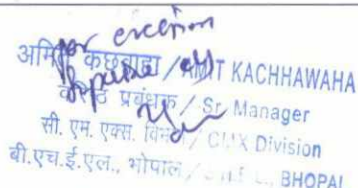 for erection
purpose only
अमित कछवाहा / AMIT KACHHAWAHA
वरिष्ठ प्रबंधक / Sr. Manager
सी. एम. एक्स. विभाग / CMX Division
बी.एच.ई.एल., भोपाल / B.H.E.L., BHOPAL